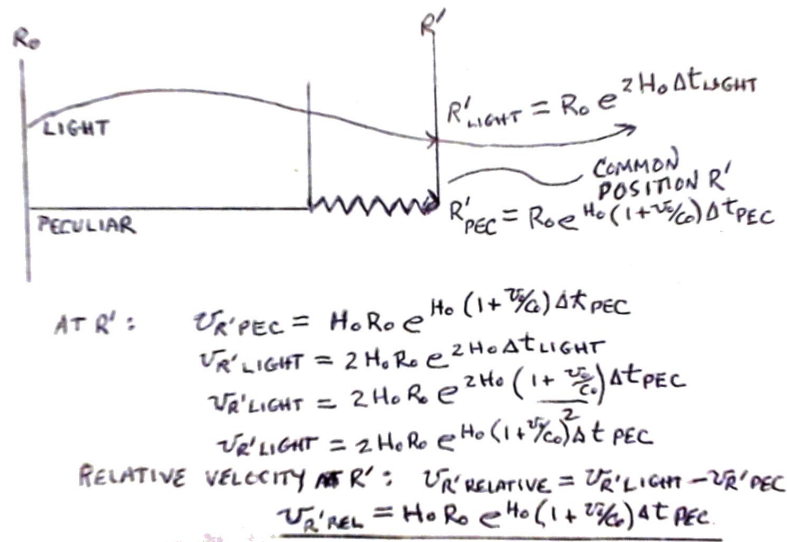 R₀
R'
R'LIGHT = R₀ e^2H₀ΔtLIGHT
LIGHT
COMMON
POSITION R'
PECULIAR
R'PEC = R₀e^H₀(1+v₀/c₀)ΔtPEC
AT R': vR'PEC = H₀R₀ e^H₀(1+v₀/c₀)ΔtPEC
vR'LIGHT = 2H₀R₀ e^2H₀ΔtLIGHT
vR'LIGHT = 2H₀R₀ e^2H₀((1+v₀/c₀)/2)ΔtPEC
vR'LIGHT = 2H₀R₀ e^H₀(1+v₀/c₀)Δt PEC
RELATIVE VELOCITY AT R': vR'RELATIVE = vR'LIGHT - vR'PEC
vR'REL = H₀R₀ e^H₀(1+v₀/c₀)ΔtPEC.